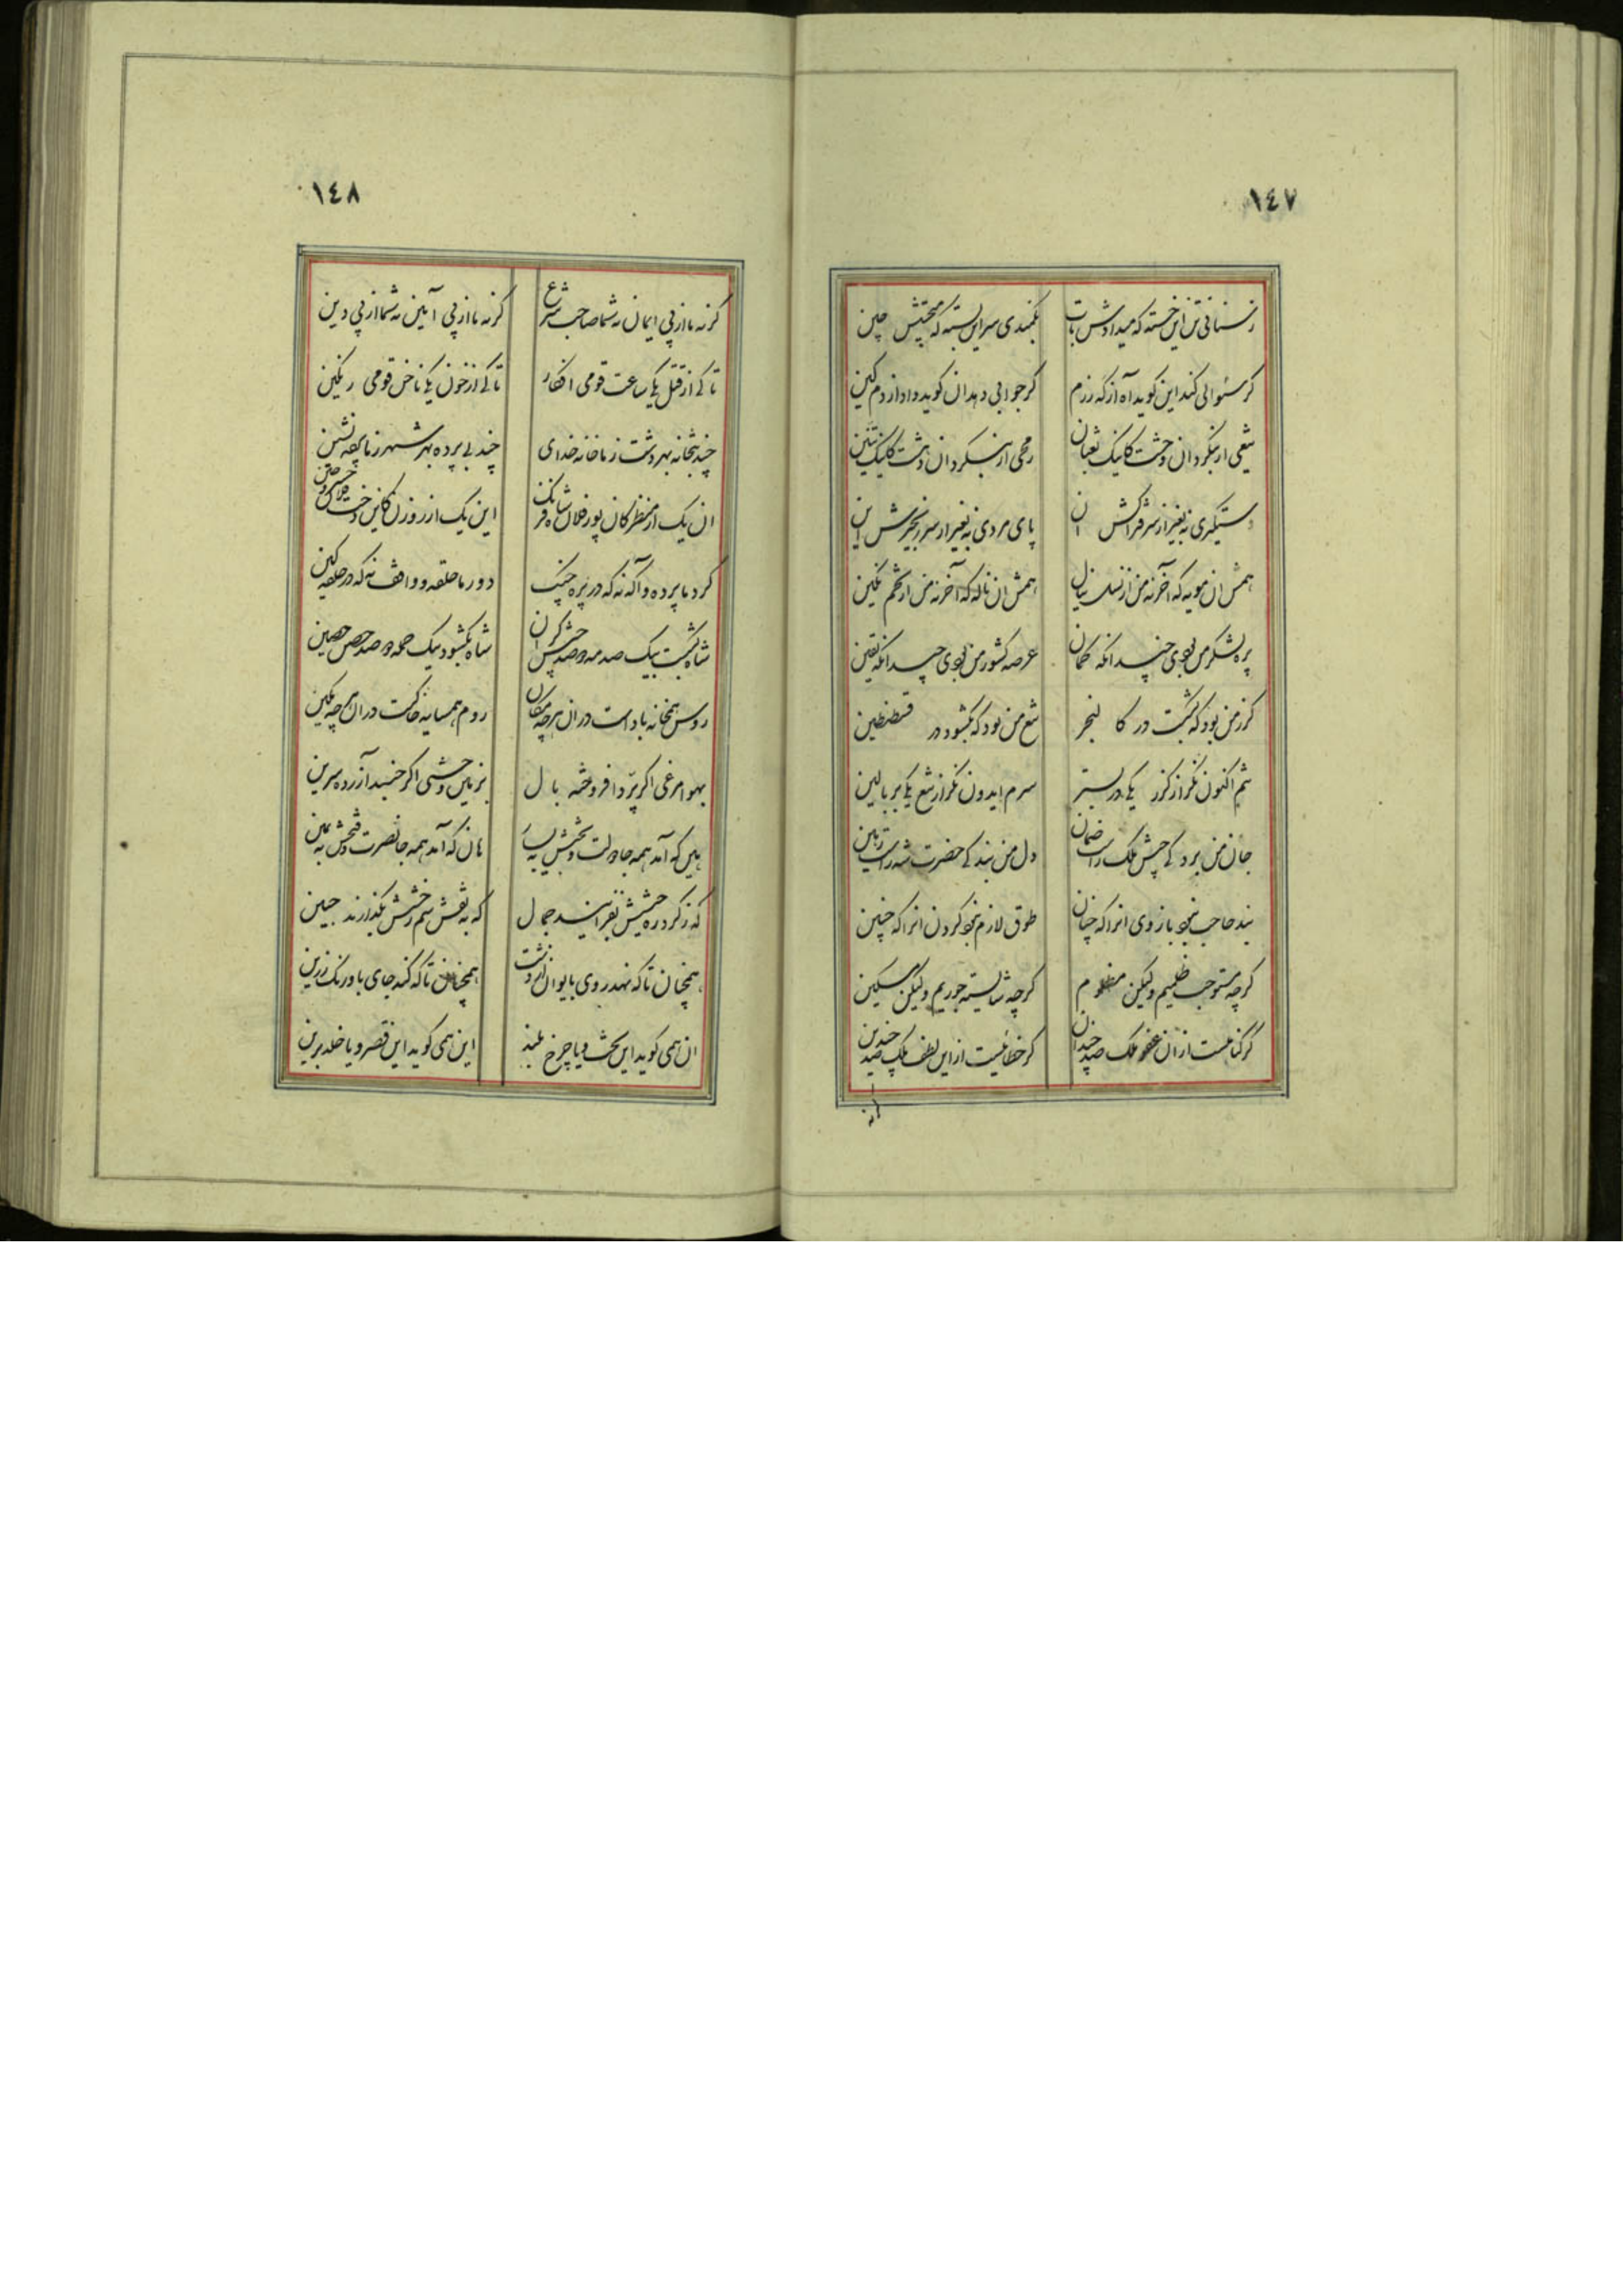 ١٤٧
ز سنانی تن این خسته که میدادش تاب
بکمندی سر این بسته که میبختش چین
گر سئوالی کند این گوید آه از گه رزم
گر جوابی دهد آن گوید داد از دم کین
شعی ار بنگرد آن وحشت کاینک ثعبان
رمحی ار بنگرد آن دهشت کاینک تنین
دستگیری نه بغیر از سر فتراکش آن
پای مردی نه بغیر از سر زنجیرش این
همش آن مویه که آخر نه من از نسل نیال
همش آن ناله که آخر نه من از تخم تکین
پره لشکر من بودی چندانکه گمان
عرصه کشور من بودی چندانکه یقین
گرز من بود که بشکست در کالنجر
تیغ من بود که بگشود در قسطنطین
تنم اکنون نگر از گرز یکی در بستر
سرم ایدون نگر از تیغ یکی بر بالین
جان من برد کی جیش ملک راست ضمان
دل من بندگی حضرت شه راست رهین
بند حاجب نبود بازوی انرا که چنان
طوق لازم نبود گردن انرا که چنین
گرچه مستوجب ظلمیم ولیکن مظلوم
گرچه شایسته جوریم ولیکن مسکین
گر گناهست از آن عفو ملک صد چندان
گر خطائیست از این لطف ملک صد چندین
گر نه
١٤٨
گر نه ما از پی ایمان نه شما صاحب شرع
گر نه ما از پی آیین نه شما از پی دین
تا کی از قتل یکی ساعت قومی افکار
تا کی از خون یکی ناخن قومی رنگین
چند بتخانه بهر دشت ز ما خانه خدای
چند بی پرده بهر شهر ز ما پرده نشین
آن یک از منظر کان پور فلان شاه فرنگ
این یک از روزن کاین دخت فلان خسرو چین
گرد ما پرده و آگه نه که در پره جنگ
دور ما حلقه و واقف نه که در حلقه کین
شاه بشکست بیک صدمه دو صد جیش گران
شاه بگشود بیک حمله دو صد حصن حصین
روس همخانه باد است در آن هر چه مکان
روم همسایه خاکست در آن هر چه مکین
بهوا مرغی اگر پرد افروخته بال
بزمین وحشی اگر خسبد آزرده سرین
بین که آمد همه جا دولت و بختش به یسار
هان که آمد همه جا نصرت و فتحش به یمین
که ز گرد ره جیشش بفزایند جمال
که به نقش سم رخشش بگذارند جبین
همچنان تا که نهد روی بایوان از دشت
همچنین تا که کند جای باورنگ از زین
آن همی گوید این تخت و یا چرخ بلند
این همی گوید این قصر و یا خلد برین